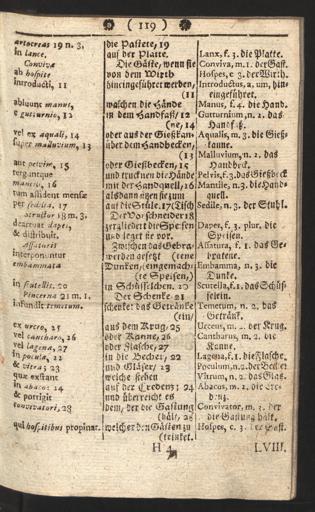 ( 119 )
artocreas 19 n. 3.
in lance,
Convivæ
ab hospite
introducti, 11
abluunt manus,
è gutturnio, 12
vel ex aquali, 14
super malluvium, 13
aut pelvim, 15
terguntque
mantili, 16
tum assident mensæ
per sedilia, 17
Structor 18 m. 3.
deartuat dapes,
& distribuit.
Assaturis
interponuntur
embammata
in scutellis. 20
Pincerna 21 m. 1.
infundit temetum.
ex urceo, 25
vel cantharo, 26
vel lagena, 27
in pocula, 22
& vitrea 23
quæ exstant
in abaco: 24
& porrigit
convivatori, 28
qui hospitibus propinat.
die Pastete, 19
auf der Platte.
Die Gäste, wenn sie
von dem Wirth
hineingeführet werden,
(11
waschen die Hände
in dem Handfaß, 12
(ne, 14
oder aus der Gießkan-
über dem Handbecken,
(13
oder Gießbecken, 15
und trucknen die Hände
mit der Handquell, 16
alsdann sitzen sie zum
auf die Stüle. 17 (Tisch
Der Vorschneider 18
zergliedert die Speisen
und leget sie vor.
Zwischen das Gebra-
werden gesetzt (tene
Dunken, (eingemach-
(te Speisen,)
in Schüsselchen. 20
Der Schenke 21
schenket das Getränke
(ein/
aus dem Krug, 25
oder Kanne, 26
oder Flasche, 27
in die Becher, 22
und Gläser, 23
welche stehen
auf der Credenz; 24
und überreicht es
dem, der die Gastung
(hält, 28
welcher den Gästen zu
(trinket.
Lanx, f. 3. die Platte.
Conviva, m. 1. der Gast.
Hospes, c 3. der Wirth.
Introductus, a, um, hin-
eingeführet.
Manus, f. 4. die Hand.
Gutturnium, n. 2. das
Handfaß.
Aqualis, m. 3. die Gieß-
kanne.
Malluvium, n. 2. das
Handbeck.
Pelvis, f. 3. das Gießbeck
Mantile, n. 3. die Hand-
quell.
Sedile, n. 3. der Stuhl.
Dapes, f. 3. plur. die
Speisen.
Assatura, f. 1. das Ge-
bratene.
Embamma, n. 3. die
Dunke.
Scutella, f. 1. das Schüs-
selein.
Temetum, n. 2. das
Getränk.
Urceus, m. 2. der Krug.
Cantharus, m. 2. die
Kanne.
Lagena, f. 1. die Flasche.
Poculum, n. 2. der Becher
Vitrum, n. 2. das Glas.
Abacus, m. 2. die Cre-
denz.
Convivator, m. 3. der
die Gastung hält.
Hospes, c. 3. der Gast.
H 4
LVIII.